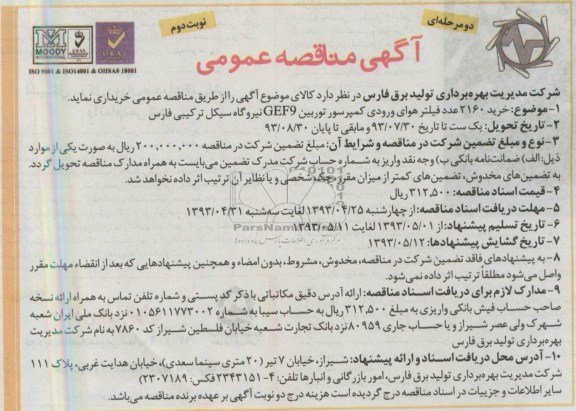 دومرحله‌ای
نوبت دوم
آگهی مناقصه عمومی
MOODY
INTERNATIONAL
UKAS
ISO 9001 & ISO14001 & OHSAS 18001
شرکت مدیریت بهره‌برداری تولید برق فارس در نظر دارد کالای موضوع آگهی را از طریق مناقصه عمومی خریداری نماید.
۱- موضوع: خرید ۲۱۶۰ عدد فیلتر هوای ورودی کمپرسور توربین GEF9 نیروگاه سیکل ترکیبی فارس
۲- تاریخ تحویل: یک ست تا تاریخ ۹۳/۰۷/۳۰ و مابقی تا پایان ۹۳/۰۸/۳۰
۳- نوع و مبلغ تضمین شرکت در مناقصه و شرایط آن: مبلغ تضمین شرکت در مناقصه ۲۰۰,۰۰۰,۰۰۰ ریال به صورت یکی از موارد
ذیل: الف) ضمانت‌نامه بانکی ب) وجه نقد واریز به شماره حساب شرکت مدرک تضمین می‌بایست به همراه مدارک مناقصه تحویل گردد.
به تضمین‌های مخدوش، تضمین‌های کمتر از میزان مقرر، چک شخصی و یا نظایر آن ترتیب اثر داده نخواهد شد.
۴- قیمت اسناد مناقصه: ۳۱۲,۵۰۰ ریال
۵- مهلت دریافت اسناد مناقصه: از چهارشنبه ۱۳۹۳/۰۴/۲۵ لغایت سه‌شنبه ۱۳۹۳/۰۴/۳۱
۶- تاریخ تسلیم پیشنهاد: از ۱۳۹۳/۰۵/۰۱ لغایت ۱۳۹۳/۰۵/۱۱
۷- تاریخ گشایش پیشنهادها: ۱۳۹۳/۰۵/۱۲
۸- به پیشنهادهای فاقد تضمین شرکت در مناقصه، مخدوش، مشروط، بدون امضاء و همچنین پیشنهادهایی که بعد از انقضاء مهلت مقرر
واصل می‌شود مطلقاً ترتیب اثر داده نمی‌شود.
۹- مدارک لازم برای دریافت اسناد مناقصه: ارائه آدرس دقیق مکاتباتی با ذکر کد پستی و شماره تلفن تماس به همراه ارائه نسخه
صاحب حساب فیش بانکی واریزی به مبلغ ۳۱۲,۵۰۰ ریال به حساب سیبا به شماره ۰۱۰۵۶۱۱۷۷۳۰۰۲ نزد بانک ملی ایران شعبه
شهرک ولی عصر شیراز و یا حساب جاری ۸۰۹۵۹ نزد بانک تجارت شعبه خیابان فلسطین شیراز کد ۷۸۶۰ به نام شرکت مدیریت
بهره‌برداری تولید برق فارس
۱۰- آدرس محل دریافت اسناد و ارائه پیشنهاد: شیراز، خیابان ۷ تیر (۲۰ متری سینما سعدی)، خیابان هدایت غربی، پلاک ۱۱۱
شرکت مدیریت بهره‌برداری تولید برق فارس، امور بازرگانی و انبارها تلفن: ۴-۲۳۴۳۱۵۱ فکس: ۲۳۰۷۱۸۹)
سایر اطلاعات و جزییات در اسناد مناقصه درج گردیده است هزینه درج دو نوبت آگهی بر عهده برنده مناقصه می‌باشد.